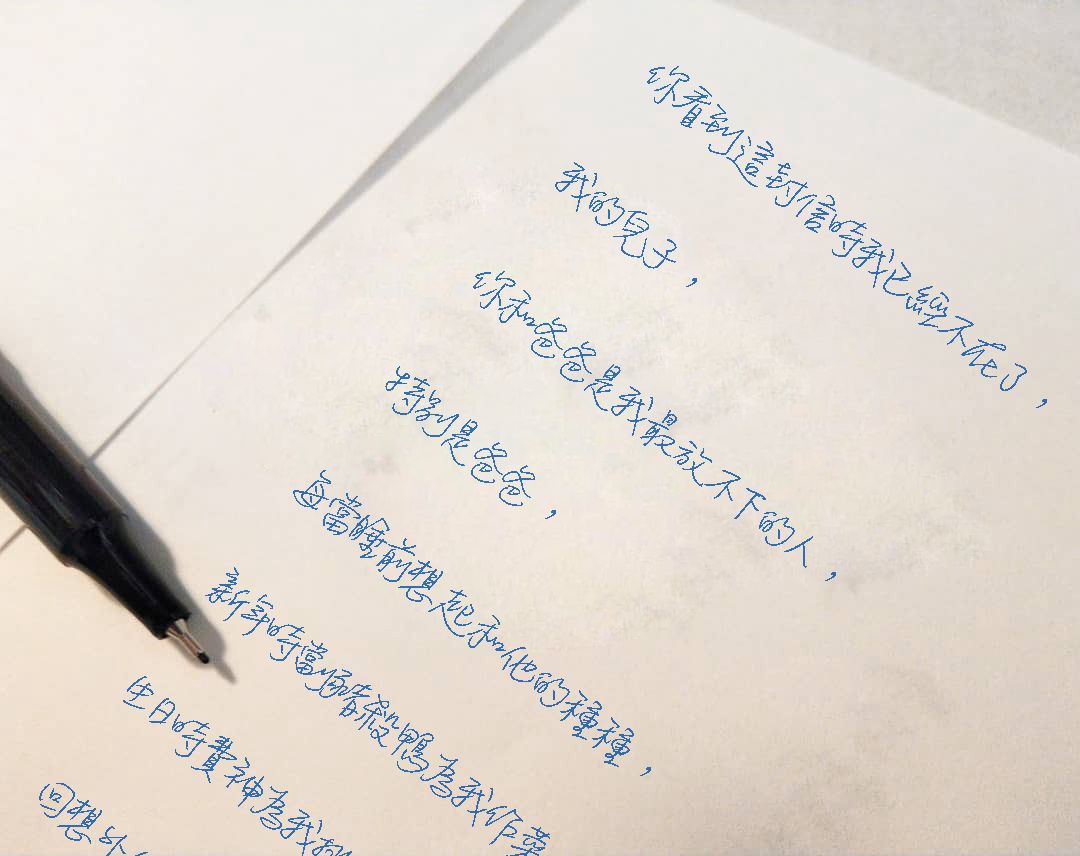 你看到這封信時我已經不在了，
我的兒子，
你和爸爸是我最放不下的人，
特別是爸爸，
每當睡前想起和他的種種，
新年時當場宰殺鴨為我作菜
生日時費神為我
回想外